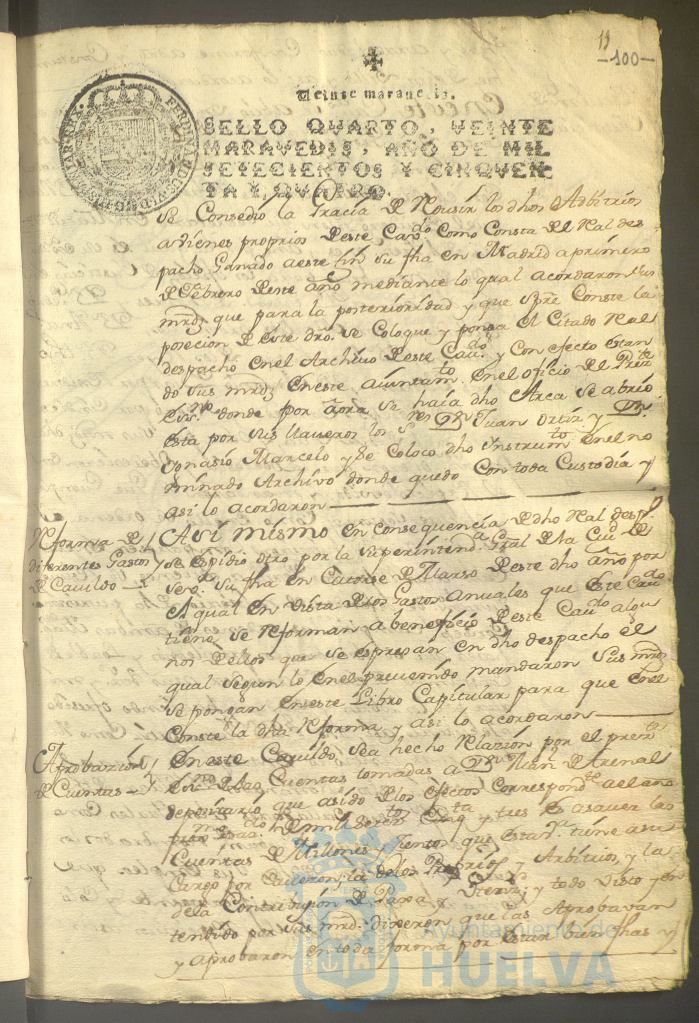 11
-100-
Veinte maravedis.
SELLO QVARTO, VEINTE
MARAVEDIS, AÑO DE MIL
SETECIENTOS Y CINQVEN
TA Y QVATRO.
Se Consedio la Gracia de los dhos Adbitrios
a vienes proprios deste Cavdo Como Consta del Real des
pacho Ganado a este fin su fha en Madrid a primero
de Febrero deste año mediante lo qual acordaron sus
mrds que para la posterioridad y que spre Conste la
posecion de este dro. se Coloque y ponga el Citado Real
despacho en el Archivo deste Cavdo. y Con efecto estan
do sus mrds en este aiuntamto en el oficio del Prete
essno donde por aora se haia dho Arca se abrio
esta por sus llaveros los Sres Dn Juan Ortiz y Dn
Ignasio Marcelo y se Coloco dho Instrumto en el no
minado Archivo donde quedo Con toda Custodia y
asi lo acordaron
Reforma de
diferentes Gastos
de Cavildo
Asi mismo en consequencia de dho Real desp
se espidio otro por la superintenda Gral de la Ciud de
Seva. su fha en Catorse de Marso deste dho año por
el qual en vista de los Gastos anuales que este Cavdo
tiene se Reforman a beneficio deste Cavdo algu
nos dellos que se espresan en dho despacho el
qual segun lo en el prevenido mandaron sus mrds
se pongan en este Libro Capitular para que en el
Conste la dha Reforma y asi lo acordaron
Aprobazion
de Cuentas
En este Cavildo sea hecho Relazion por el prete
essno de las Cuentas tomadas a Dn de Arenal
depositario que a sido de los efectos Correspondtes al año
pasado de mil setetos Cinqta y tres es a saver las
Cuentas de Millones y Cientos que estan tiene a su
Cargo por la de los Propios y Arbitrios y la
de la Contribuzion de Paxa y y todo visto y en
tendido por sus mrds dixeron que las Aprobavan
y aprobaron en toda forma por estar bien fhas y
Ayuntamiento de
HUELVA